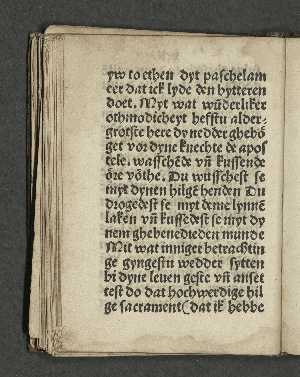 yw to ethen dyt paschelam
eer dat ick lyde den bytteren
doet. Myt wat wūderliker
othmodicheyt hefftu alder-
grotste here dy nedder ghebō
get vor dyne knechte de apos
tele. wasschēde vñ kussende
ōre vōthe. Du wusschest se
myt dynen hilgē henden Du
drogedest se myt deme lynnē
laken vñ kussedest se myt dy
nem ghebenedieden munde
Mit wat inniger betrachtin
ge gyngestu wedder sytten
bi dyne leuen geste vñ anset
test do dat hochwerdige hil
ge sacrament (dat ik hebbe